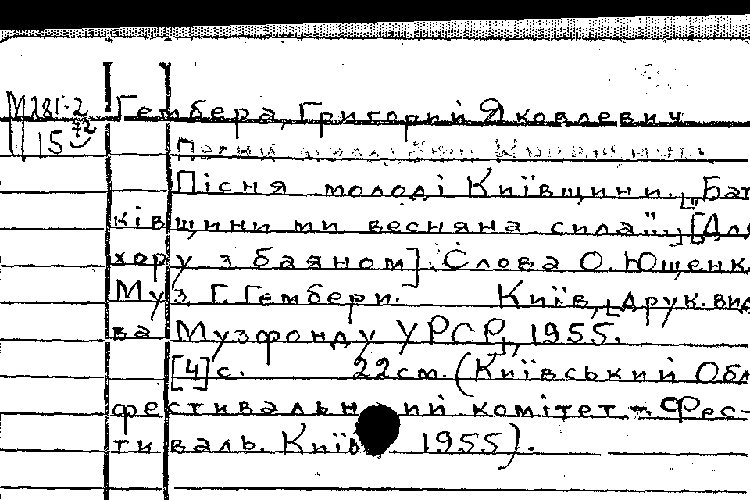 М281-2 Гембера, Григорий Яковлевич
15
Пісня молоді Київщини. ["Бать
ківщини ми весняна сила".] [Для
хору з баяном]. Слова О. Ющенк
Муз. Г. Гембери. Київ, [друк. вид
ва Музфонду УРСР], 1955.
[4] с. 22 см. (Київський Обл
фестивальний комітет. Фес-
тиваль. Київ 1955).